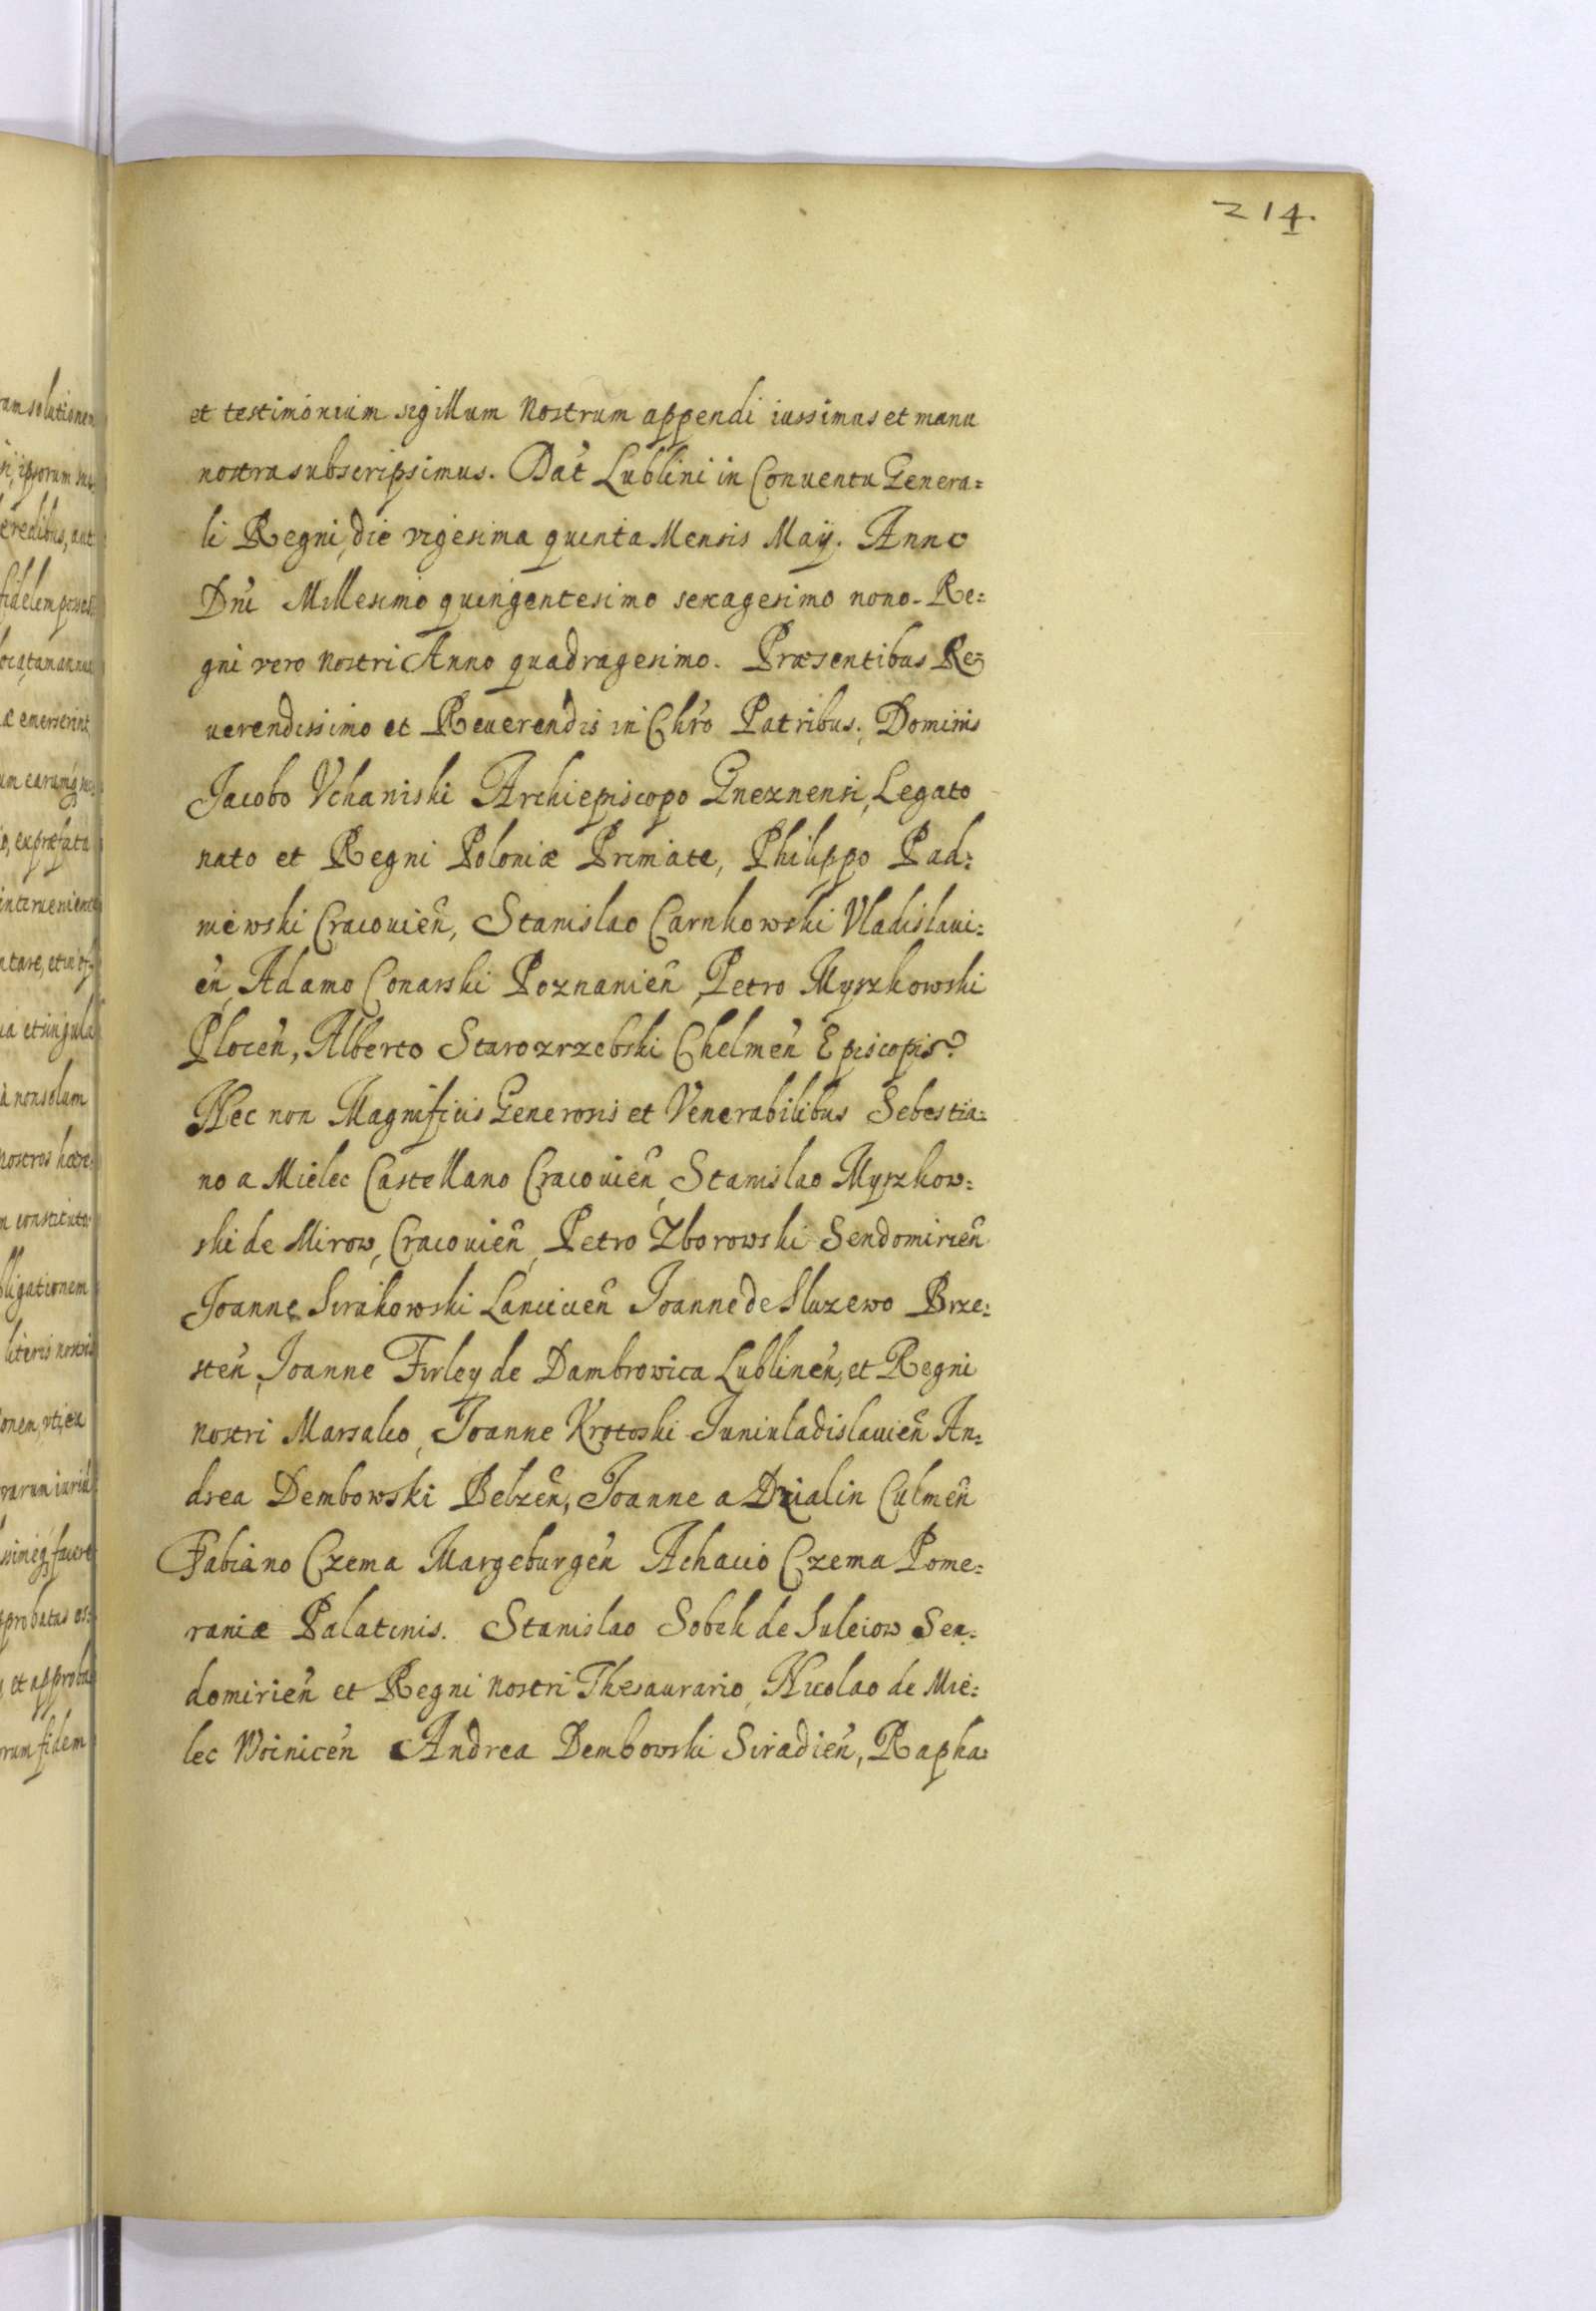 214.
et testimonium sigillum Nostrum appendi iussimus et manu
nostra subscripsimus. Dat Lublini in Conuentu Genera=
li Regni, die vigesima quinta Mensis Maÿ. Anno
Dni Millesimo quingentesimo sexagesimo nono. Re=
gni vero nostri Anno quadragesimo. Præsentibus Re=
uerendissimo et Reuerendis in Chro Patribus, Dominis
Jacobo Vchanski Archiepiscopo Gneznensi, Legato
nato et Regni Poloniæ Primate, Philippo Pad=
niewski Cracouien, Stanislao Carnkowski Vladislaui=
en, Adamo Conarski Poznanien, Petro Myszkowski
Plocen, Alberto Starozrzebski Chelmen Episcopis.
Nec non Magnificis Generosis et Venerabilibus Sebestia=
no a Mielec Castellano Cracouien, Stanislao Myszkow=
ski de Mirow, Cracouien, Petro Zborowski Sendomirien
Joanne Sirakowski Lancicien Joanne de Sluzewo Brze=
sten, Joanne Firley de Dambrowica Lublinen, et Regni
nostri Marsalco, Joanne Krotoski Juniuladislauien An=
drea Dembowski Belzen, Joanne a Dzialin Culmen
Fabiano Czema Margeburgen Achacio Czema Pome=
raniæ Palatinis. Stanislao Sobek de Suleiow Sen=
domirien et Regni nostri Thesaurario, Nicolao de Mie=
lec Woinicen Andrea Dembowski Siradien, Rapha=